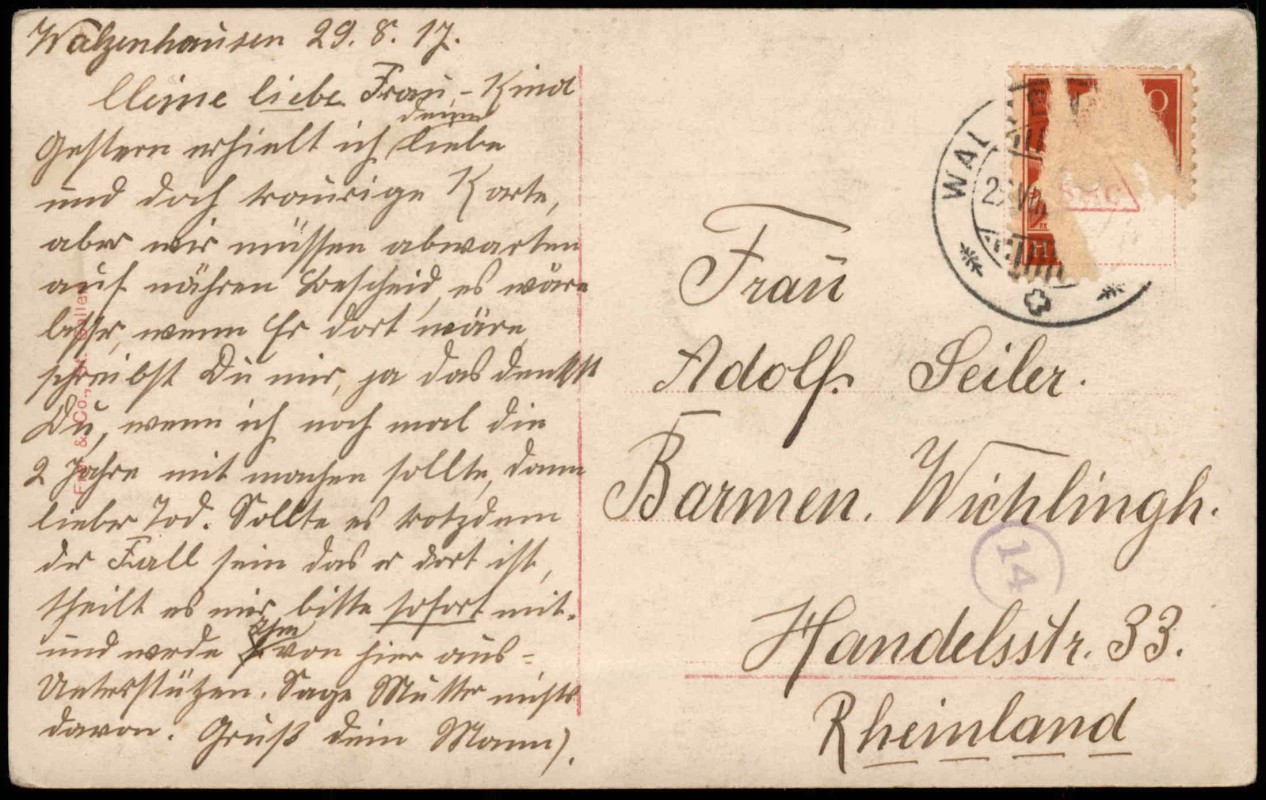 Walzenhausen 29. 8. 17.
Meine liebe Frau, - Kind
deine
Gestern erhielt ich liebe
und doch traurige Karte,
aber wir müssen abwarten
auf nähren Bescheid, es wäre
besser, wenn Er dort wäre,
schreibst Du mir, ja das denkst
Du, wenn ich noch mal die
2 Jahre mit machen sollte, dann
lieber Tod. Sollte es trotzdem
der Fall sein das er dort ist,
theilt es mir, bitte sofort mit.
ihm
und werde von hier aus-
Unterstützen. Sage Mutter nichts
davon. Gruß dein Mann).
Frau
Adolf. Seiler.
Barmen. Wichlingh.
Handelsstr. 33.
Rheinland
WAL
14
& Co.,